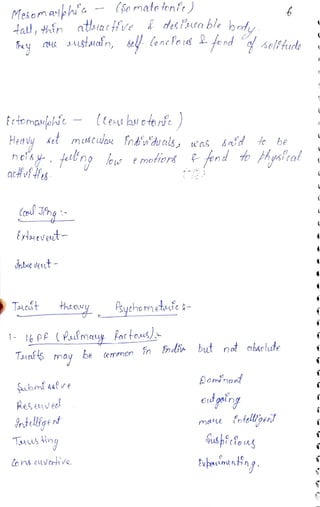 Mesomorphic - (Somatotonic)
6
tall, thin attractive & desireable body
They are sustain, self Concious & fond of solitude
Ectomorphic - (Cerebrotonic)
Heavy set muscular individuals, was said to be
noisy. feeling low emotions & fond to physical
activities
Carl Jung :-
Extrovert -
Introvert -
Trait theory Psychometric :-
1- 16 PF (Primary factors):-
Traits may be common in Indiv but not absolute
Submissive Dominant
Reserved outgoing
Intelligent more Intelligent
Trusting Suspicious
Conservative Experimenting.